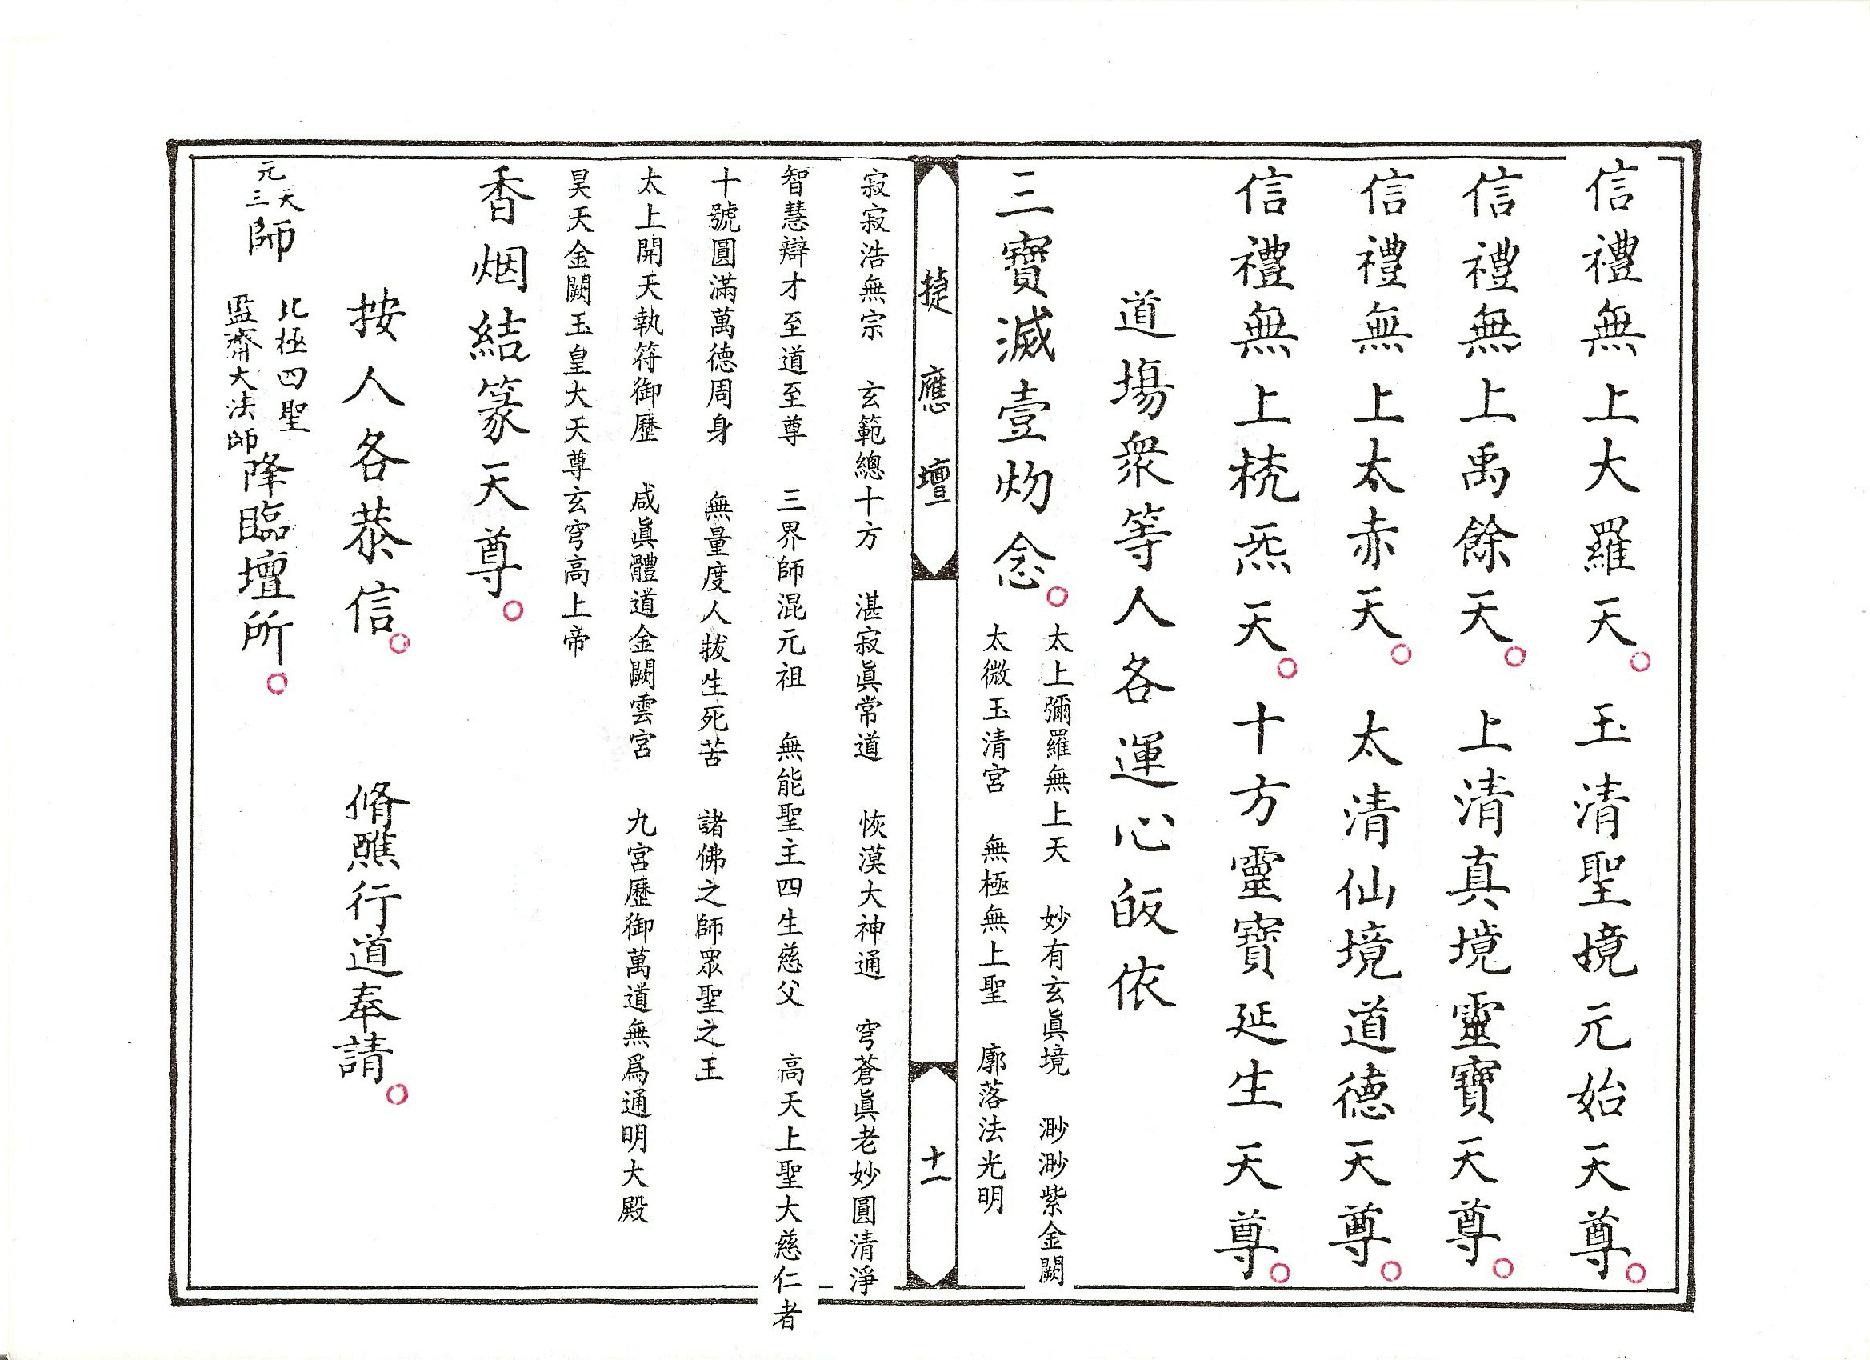 信禮無上大羅天。玉清聖境元始天尊。
信禮無上禹餘天。上清真境靈寶天尊。
信禮無上太赤天。太清仙境道德天尊。
信禮無上梵炁天。十方靈寶延生天尊。
道場衆等人各運心皈依
三寶滅壹炀念。
太上彌羅無上天 妙有玄眞境 渺渺紫金闕
太微玉清宮 無極無上聖 廓落法光明
捷應壇 十一
寂寂浩無宗 玄範總十方 湛寂眞常道 恢漠大神通 穹蒼眞老妙圓清淨
智慧辯才至道至尊 三界師混元祖 無能聖主四生慈父 高天上聖大慈仁者
十號圓滿萬德周身 無量度人拔生死苦 諸佛之師眾聖之王
太上開天執符御歷 咸眞體道金闕雲宮 九宮歷御萬道無爲通明大殿
昊天金闕玉皇大天尊玄穹高上帝
香烟結篆天尊。
按人各恭信。脩醮行道奉請。
三元
天
師
北極四聖
監齋大法師
降臨壇所。